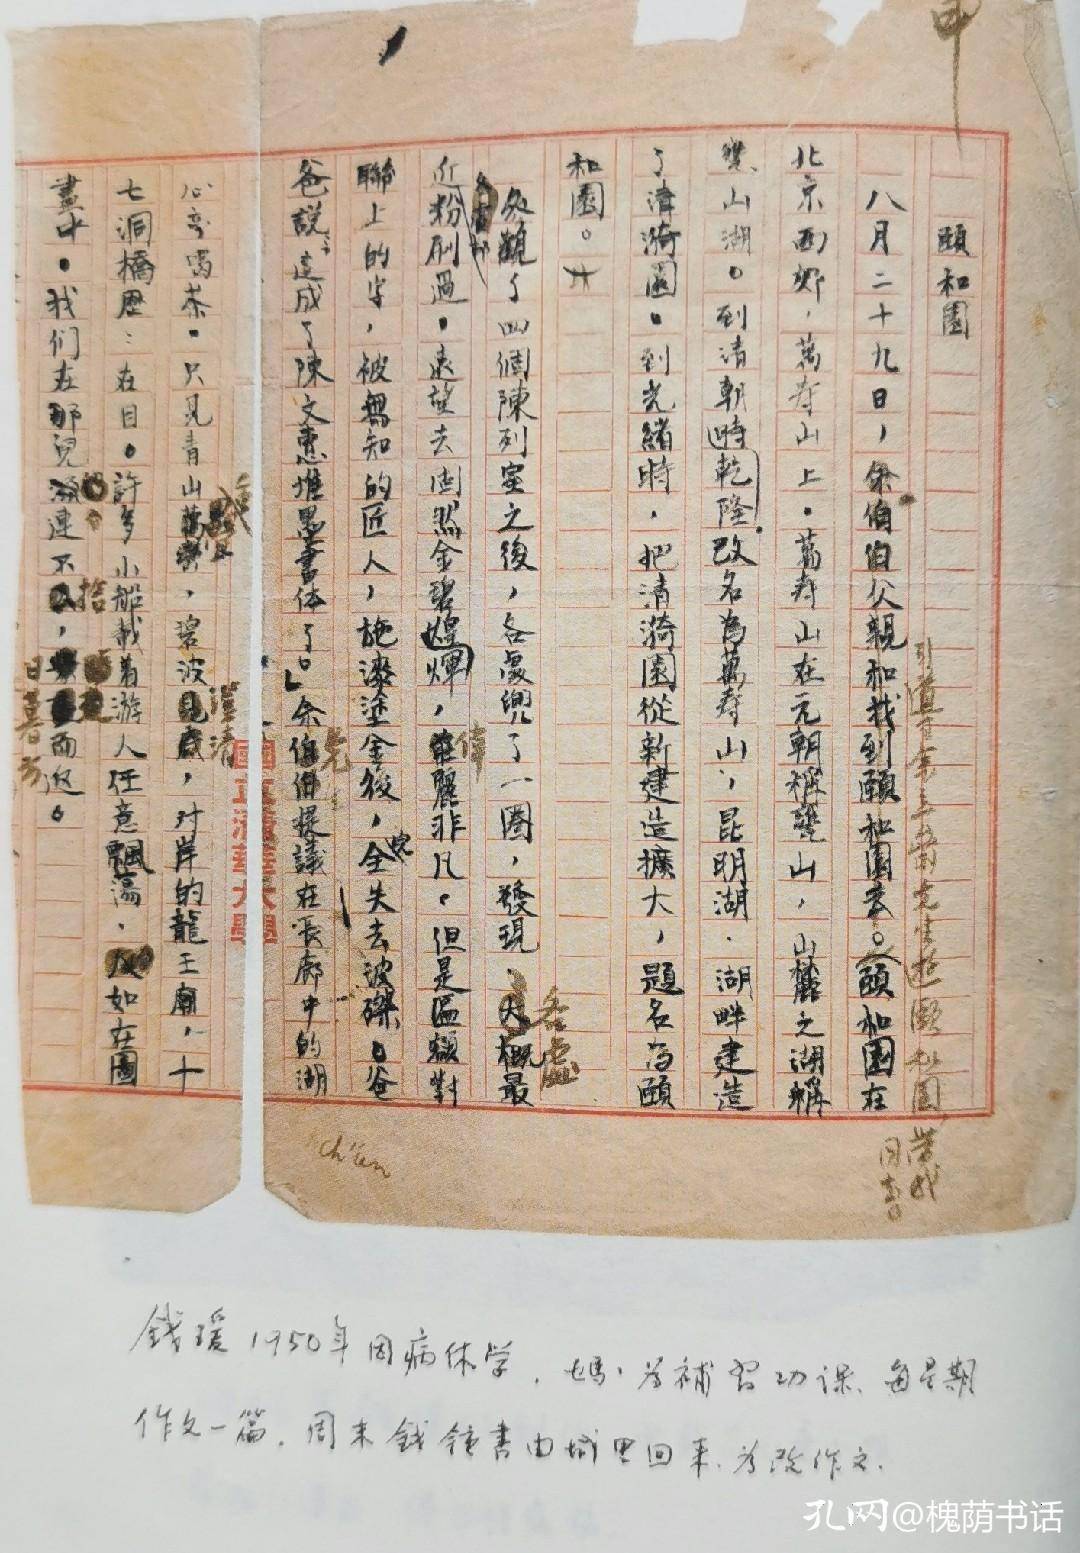 頤和園
八月二十九日，余伯伯父親和我到頤和園玄。頤和園在
北京西郊，萬寿山上。萬寿山在元朝稱甕山，山麓之湖稱
甕山湖。到清朝時乾隆改名為萬寿山，昆明湖．湖畔建造
了清漪園。到光緒時，把清漪園從新建造擴大，題名为頤
和園。
參觀了四個陳列室之後，各處兜了一圈，發現、大概最
各處
近粉刷過。遠望去固然金碧煌輝，莊麗非凡。但是匾額對
偉
聯上的字，被無知的匠人，施漆塗金後，全失去波磔。爸
爸說：這成了陳文惠堆墨書体了。」余伯伯提議在長廊中的湖
心亭喝茶。只見青山，碧波，对岸的龍王廟，十
七洞橋歷：在目。許多小船載着游人任意飄蕩，如在圖
畫中。我们在那兒連不，而返。
捨
日暮方
國立清華大學
Ch'ien
錢瑗1950年因病休学，媽：为補習功课、每星期
作文一篇，周末錢鍾書由城里回来、为改作文．
孔网@槐荫书话